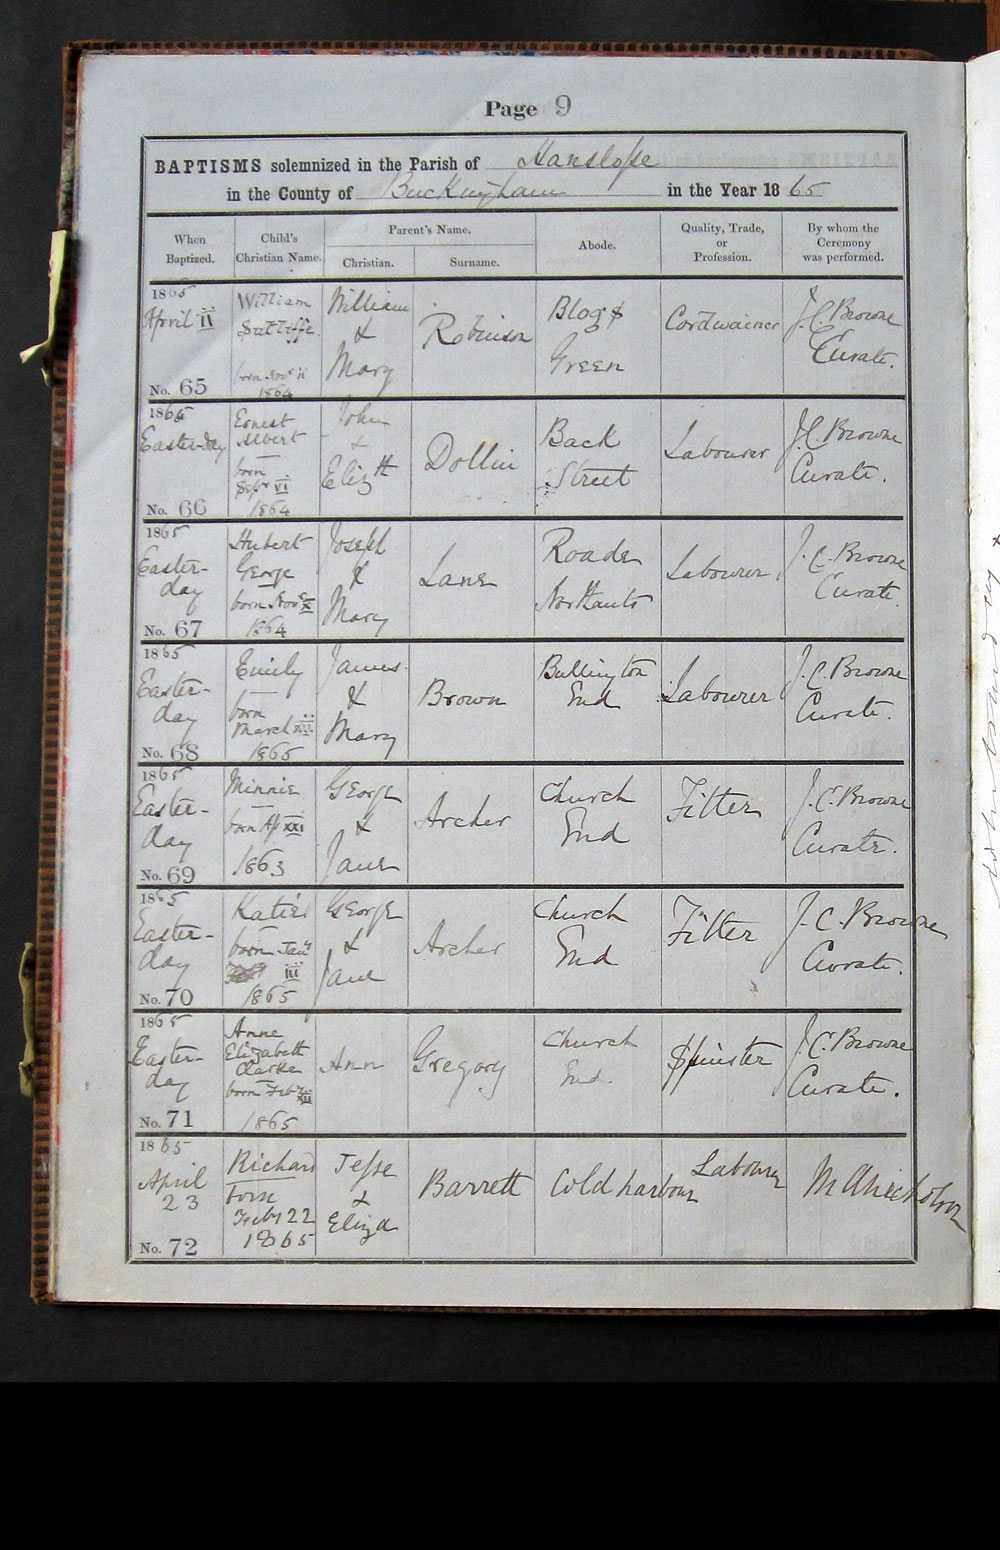 Page 9
BAPTISMS solemnized in the Parish of Hanslope
in the County of Buckingham in the Year 1865
When Baptized.
Child's Christian Name.
Parent's Name.
Christian.
Surname.
Abode.
Quality, Trade, or Profession.
By whom the Ceremony was performed.
1865
April II
No. 65
William
Sutliffe
born Novr II
1864
William
&
Mary
Robinson
Green
Cordwainer
J. C. Browne
Curate.
1865
Easter-day
No. 66
Ernest
Albert
born
Sepr VI
1864
John
&
Elizth
Dollin
Back
Street
Labourer
J. C. Browne
Curate.
1865
Easter-
day
No. 67
Hubert
George
born Novr X
1864
Joseph
&
Mary
Lane
Roade
Northants
Labourer
J. C. Browne
Curate.
1865
Easter-
day
No. 68
Emily
born
March
1865
James
&
Mary
Brown
Bullington
End
Labourer
J. C. Browne
Curate.
1865
Easter-
day
No. 69
Minnie
born Ap XXI
1863
George
&
Jane
Archer
Church
End
Fitter
J. C. Browne
Curate.
1865
Easter-
day
No. 70
Katie
born Jany
III
1865
George
&
Jane
Archer
Church
End
Fitter
J. C. Browne
Curate.
1865
Easter-
day
No. 71
Anne
Elizabeth
Clarke
born Feb
1865
Ann
Gregory
Church
End.
Spinster
J. C. Browne
Curate.
1865
April
23
No. 72
Richard
born
Feby 22
1865
Jesse
&
Eliza
Barrett
Cold harbour
Labourer
M A Nicholson